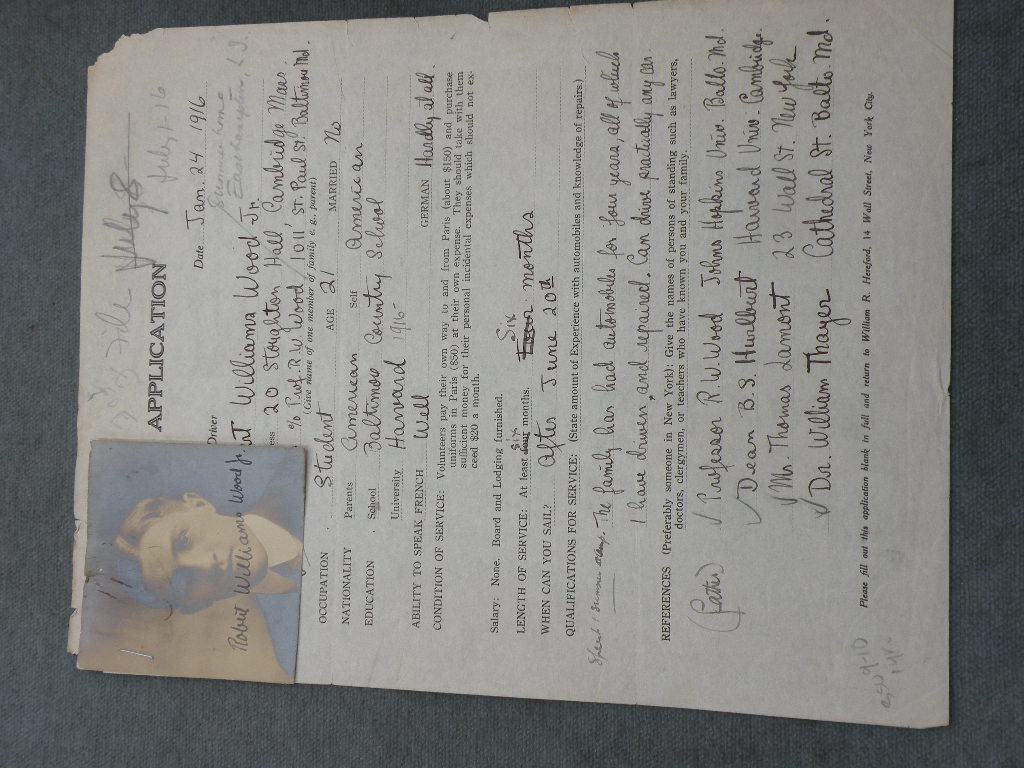 July 1-16
APPLICATION
Date Jan. 24 1916
Summer home
Easthampton, L.I.
Driver
Robert Williams Wood Jr.
Williams Wood Jr.
20 Stoughton Hall Cambridge Mas.
c/o Prof. R. W. Wood 1011 St. Paul St. Baltimore Md.
(Give name of one member of family e. g., parent)
OCCUPATION Student AGE 21 MARRIED No
NATIONALITY Parents American Self American
EDUCATION School Baltimore Country School
University Harvard 1915-
ABILITY TO SPEAK FRENCH Well GERMAN Hardly at all
CONDITION OF SERVICE: Volunteers pay their own way to and from Paris (about $150) and purchase
uniforms in Paris ($50) at their own expense. They should take with them
sufficient money for their personal incidental expenses which should not ex-
ceed $20 a month.
Salary: None. Board and Lodging furnished.
LENGTH OF SERVICE: At least four six months. Six months
WHEN CAN YOU SAIL? After June 20th
QUALIFICATIONS FOR SERVICE: (State amount of Experience with automobiles and knowledge of repairs.)
The family has had automobiles for four years, all of which
I have driven, and repaired. Can drive practically any car.
REFERENCES (Preferably someone in New York): Give the names of persons of standing such as lawyers,
doctors, clergymen, or teachers who have known you and your family.
(Father) Professor R. W. Wood Johns Hopkins Univ. Balto. Md.
Dean B. S. Hurlburt Harvard Univ. Cambridge.
Mr. Thomas Lamont 23 Wall St. New York
Dr. William Thayer Cathedral St. Balto Md
Please fill out this application blank in full and return to William R. Hereford, 14 Wall Street, New York City.